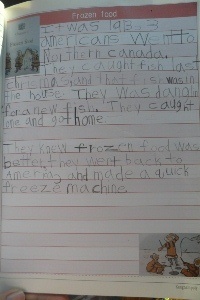 Frozen food
It was 1913
Americans went to
Northern canada.
They caught on last
christmas and ther fish was in
the house. They was danald
for a new fish. They caught
one and got home.
They knew frozen food was
better. they went back to
America and made a quick
freeze machine.